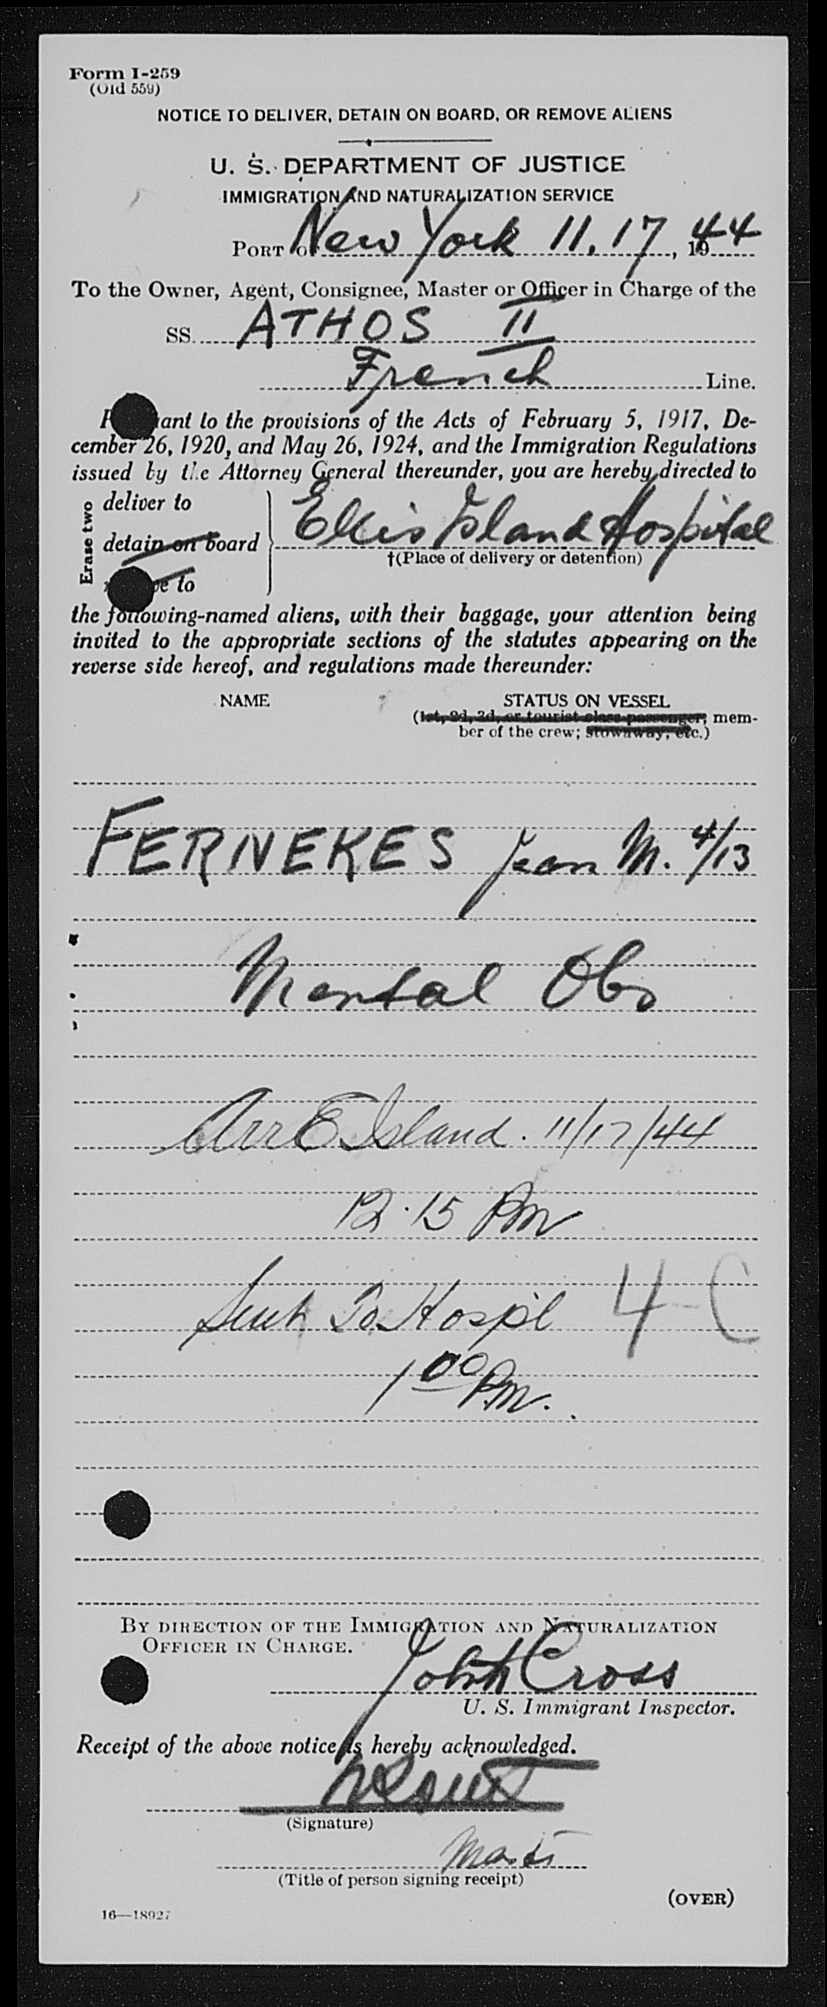 Form I-259
(Old 559)
NOTICE TO DELIVER, DETAIN ON BOARD, OR REMOVE ALIENS
U. S. DEPARTMENT OF JUSTICE
IMMIGRATION AND NATURALIZATION SERVICE
PORT OF New York 11.17, 1944
To the Owner, Agent, Consignee, Master or Officer in Charge of the
SS. ATHOS II
French Line.
P ant to the provisions of the Acts of February 5, 1917, De-
cember 26, 1920, and May 26, 1924, and the Immigration Regulations
issued by the Attorney General thereunder, you are hereby directed to
Erase two
deliver to
detain on board
e to
Ellis Island Hospital
†(Place of delivery or detention)
the following-named aliens, with their baggage, your attention being
invited to the appropriate sections of the statutes appearing on the
reverse side hereof, and regulations made thereunder:
NAME STATUS ON VESSEL
(1st, 2d, 3d, or tourist class passenger; mem-
ber of the crew; stowaway, etc.)
FERNEKES Jean M. 4/13
Mental Obs
Arr E Island. 11/17/44
12.15 PM
Sent To Hospl 4-C
1 00 PM.
BY DIRECTION OF THE IMMIGRATION AND NATURALIZATION
OFFICER IN CHARGE.
John Cross
U. S. Immigrant Inspector.
Receipt of the above notice is hereby acknowledged.
(Signature)
(Title of person signing receipt)
(OVER)
16—18927